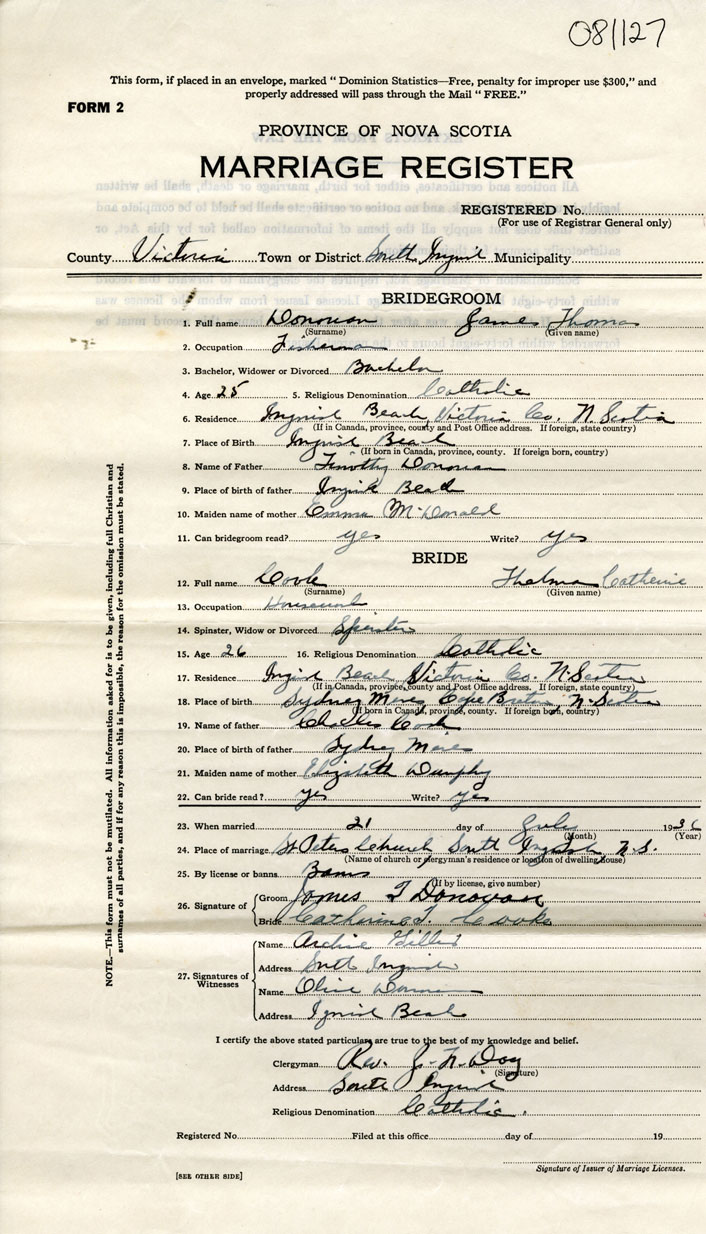 081127
This form, if placed in an envelope, marked “ Dominion Statistics—Free, penalty for improper use $300,” and
properly addressed will pass through the Mail “ FREE.”
FORM 2
PROVINCE OF NOVA SCOTIA
MARRIAGE REGISTER
REGISTERED No.
(For use of Registrar General only)
County Victoria Town or District South Ingonish Municipality
BRIDEGROOM
1. Full name Donovan James Thomas
(Surname) (Given name)
2. Occupation Fisherman
3. Bachelor, Widower or Divorced Bachelor
4. Age 25 5. Religious Denomination Catholic
6. Residence Ingonish Beach, Victoria Co. N. Scotia
(If in Canada, province, county and Post Office address. If foreign, state country)
7. Place of Birth Ingonish Beach
(If born in Canada, province, county. If foreign born, country)
8. Name of Father Timothy Donovan
9. Place of birth of father Ingonish Beach
10. Maiden name of mother Emma McDonald
11. Can bridegroom read? yes Write? yes
BRIDE
12. Full name Cook Thelma Catherine
(Surname) (Given name)
13. Occupation Housework
14. Spinster, Widow or Divorced Spinster
15. Age 26 16. Religious Denomination Catholic
17. Residence Ingonish Beach, Victoria Co. N. Scotia
(If in Canada, province, county and Post Office address. If foreign, state country)
18. Place of birth Sydney Mines, Cape Breton, N. Scotia
(If born in Canada, province, county. If foreign born, country)
19. Name of father Charles Cook
20. Place of birth of father Sydney Mines
21. Maiden name of mother Elizabeth Dunphy
22. Can bride read? yes Write? yes
23. When married 21 day of July 1936
(Month) (Year)
24. Place of marriage St. Peters Church, South Ingonish, N.S.
(Name of church or clergyman's residence or location of dwelling house)
25. By license or banns Banns
(If by license, give number)
26. Signature of Groom James T Donovan
Bride Catherine T. Cooke
27. Signatures of Witnesses
Name Archie Gillis
Address South Ingonish
Name Olive Donovan
Address Ignish Beach
I certify the above stated particulars are true to the best of my knowledge and belief.
Clergyman Rev. J. N. Day
(Signature)
Address South Ingonish
Religious Denomination Catholic.
Registered No. Filed at this office day of 19
Signature of Issuer of Marriage Licenses.
[SEE OTHER SIDE]
NOTE.—This form must not be mutilated. All information asked for is to be given, including full Christian and
surnames of all parties, and if for any reason this is impossible, the reason for the omission must be stated.